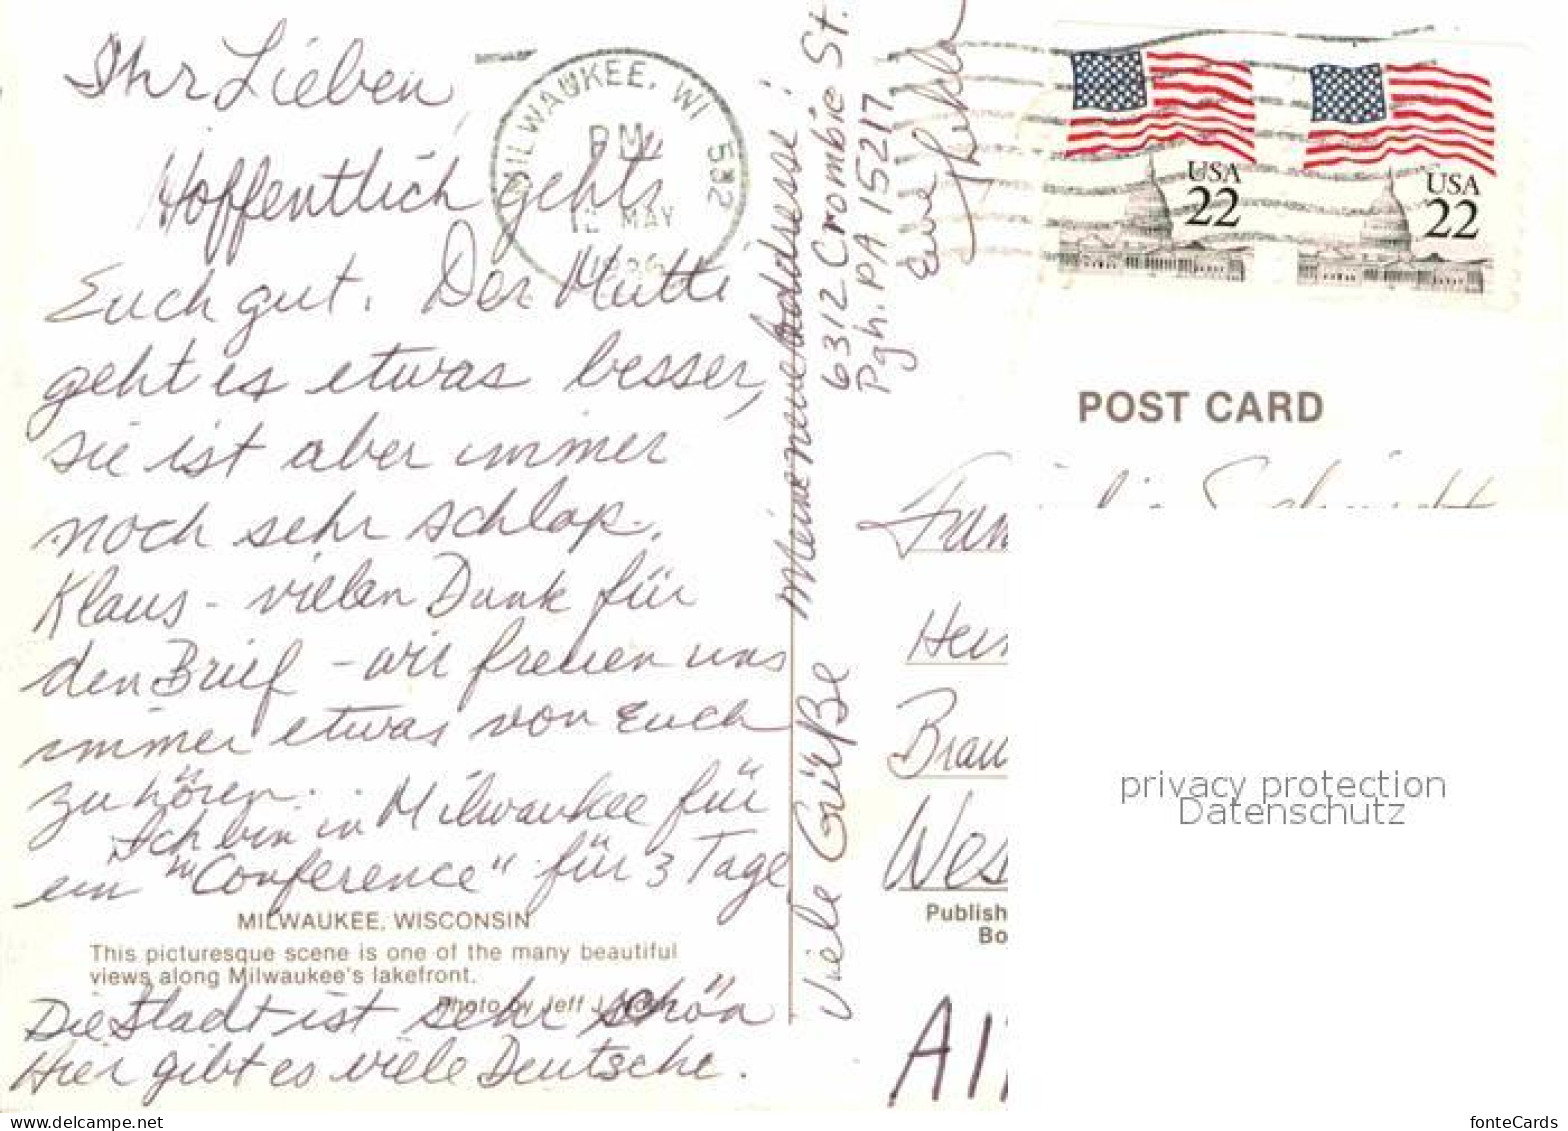 Ihr Lieben,
Hoffentlich gehts
Euch gut. Der Mutti
geht es etwas besser,
sie ist aber immer
noch sehr schlap.
Klaus - vielen Dank für
den Brief - wir freuen uns
immer etwas von Euch
zu hören.
Ich bin in Milwaukee für
ein "Conference" für 3 Tage
MILWAUKEE, WISCONSIN
This picturesque scene is one of the many beautiful
views along Milwaukee's lakefront.
Photo by Jeff J.
Die Stadt ist sehr schön
Hier gibt es viele Deutsche.
Viele Grüße
Meine neue Addresse:
6312 Crombie St.
Pgh. PA 15217
Eure
MILWAUKEE, WI 532
PM
MAY
USA
22
USA
22
POST CARD
Familie Schmidt
Hei
Brau
Wes
Publish
Bo
AI
privacy protection
Datenschutz
www.delcampe.net
fonteCards